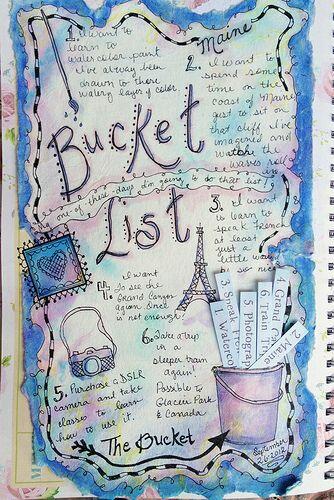 1. I want to
learn to
watercolor paint
I've always been
drawn to those
watery layers of color.
Maine
2. I want to
spend some
time on the
coast of Maine
just to sit on
that cliff I've
imagined and
watch the
waves roll
in
Bucket
one of these days I'm going to do that list!
List
3. I want
to learn to
speak French
at least
just a
little way
so nice
4. I want
to see the
Grand Canyon
again. Once
is not enough!
6. Take a trip
in
sleeper train
again!
Possible to
Glacier Park
& Canada
5. Purchase a DSLR
camera and take
classes to learn
how to use it.
The Bucket
3. Speak
1. Waterco
5. Photograp
6. Train
4. Grand
2. Maine
September
26, 2012